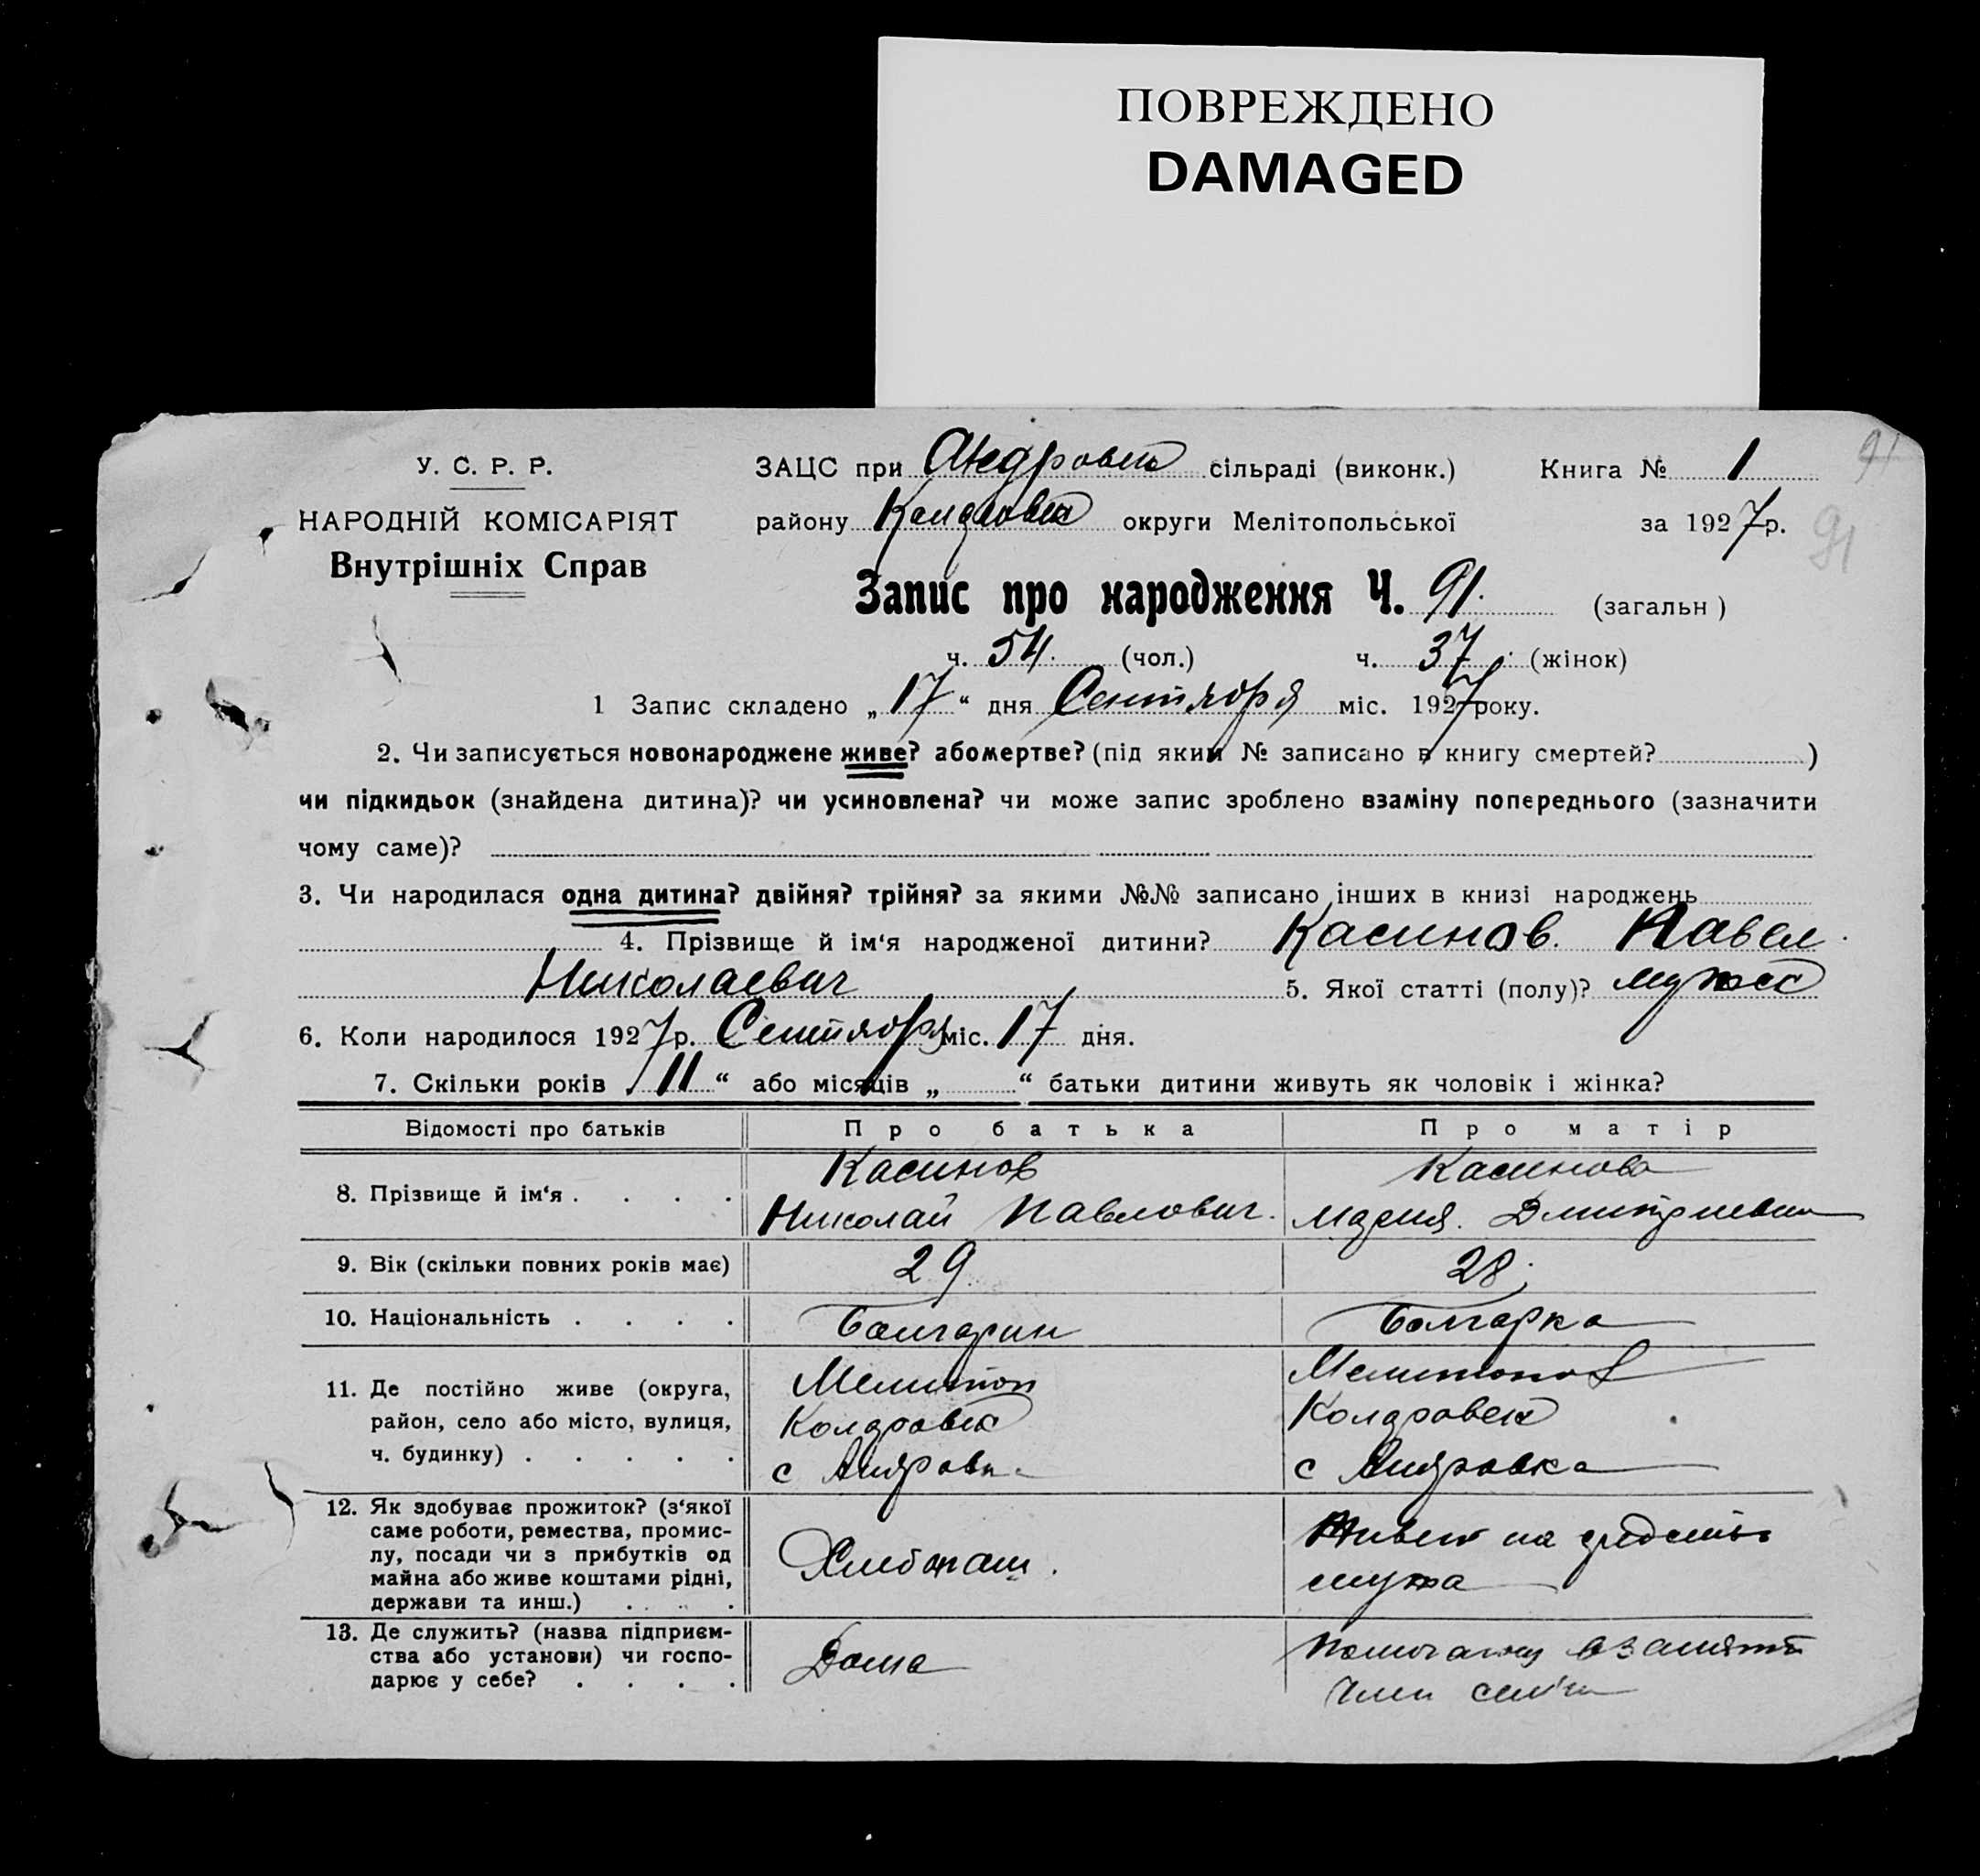 ПОВРЕЖДЕНО
DAMAGED
У. С. Р. Р.
НАРОДНІЙ КОМІСАРІЯТ
Внутрішніх Справ
ЗАЦС при Андровск сільраді (виконк.) Книга № 1
91
району округи Мелітопольської за 1927 р.
91
Запис про народження Ч. 91. (загальн)
ч. 54. (чол.) ч. 37. (жінок)
1 Запис складено „17“ дня Сентября міс. 1927 року.
2. Чи записується новонароджене живе? або мертве? (під яким № записано в книгу смертей? )
чи підкидьок (знайдена дитина)? чи усиновлена? чи може запис зроблено взаміну попереднього (зазначити
чому саме)?
3. Чи народилася одна дитина? двійня? трійня? за якими №№ записано інших в книзі народжень
4. Прізвище й ім‘я народженої дитини? Касинов. Павел
Николаевич 5. Якої статті (полу)? мужск
6. Коли народилося 1927 р. Сентября міс. 17 дня.
7. Скільки років „11“ або місяців „ “ батьки дитини живуть як чоловік і жінка?
Відомості про батьків Про батька Про матір
8. Прізвище й ім‘я . . . .
Касинов
Николай Павлович.
Касинова
Мария. Дмитриевна
9. Вік (скільки повних років має) 29 28
10. Національність . . . . Болгарин Болгарка
11. Де постійно живе (округа,
район, село або місто, вулиця,
ч. будинку) . . . . .
Мелитоп
Колдровск
с Андровк
Мелитопол
Колдровск
с Андровка
12. Як здобуває прожиток? (з‘якої
саме роботи, ремества, промис-
лу, посади чи з прибутків од
майна або живе коштами рідні,
держави та инш.) . . . .
Хлебопаш.
Живет на средства
мужа
13. Де служить? (назва підприєм-
ства або установи) чи госпо-
дарює у себе? . . . .
Дома
Помогающ
член семьи